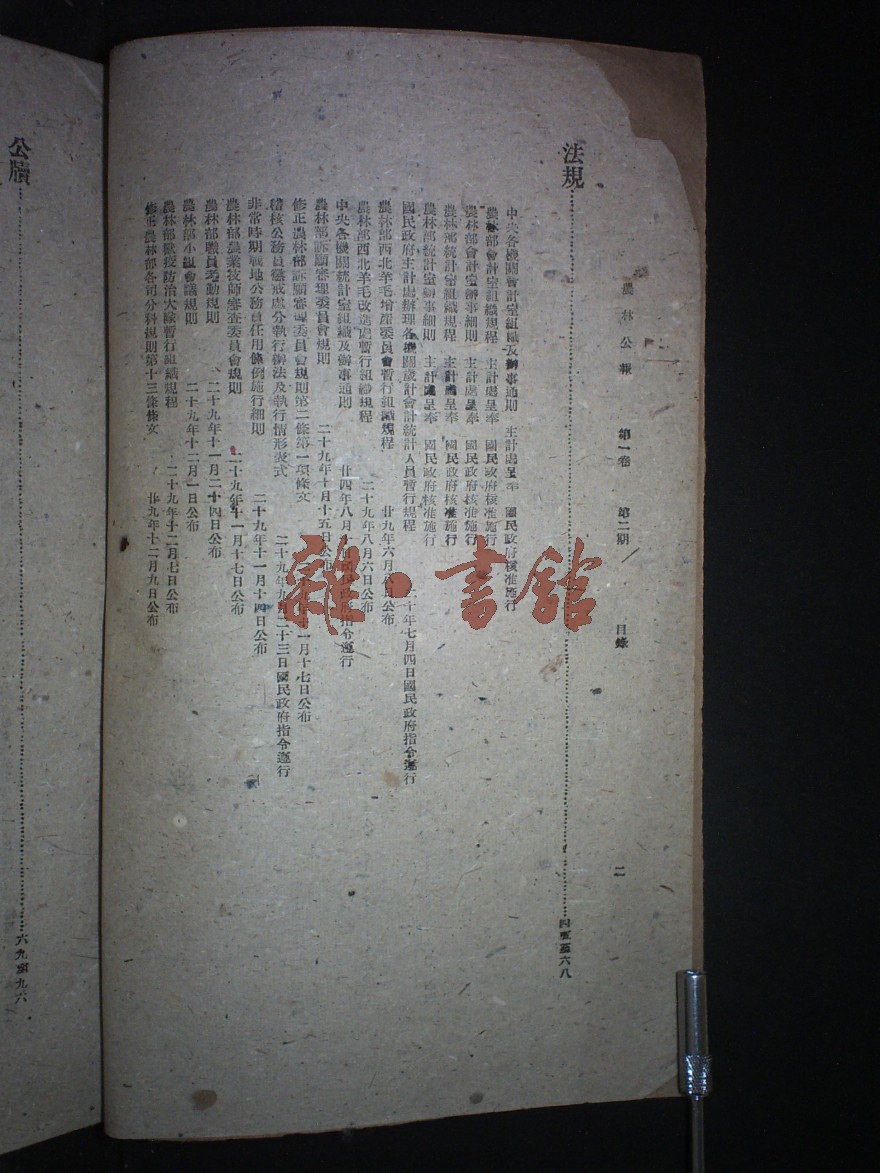 農林公報 第一卷 第二期 目錄 二
法規……四五至六八
中央各機關會計室組織及辦事通則 主計處呈奉 國民政府核准施行
農林部會計室組織規程 主計處呈奉 國民政府核准施行
農林部會計室辦事細則 主計處呈奉 國民政府核准施行
農林部統計室組織規程 主計處呈奉 國民政府核准施行
農林部統計室辦事細則 主計處呈奉 國民政府核准施行
國民政府主計處辦理各機關歲計會計統計人員暫行規程 二十年七月四日國民政府指令遵行
農林部西北羊毛增產委員會暫行組織規程 廿九年六月八日公布
農林部西北羊毛改進處暫行組織規程 二十九年八月六日公布
中央各機關統計室組織及辦事通則 廿四年八月 國民政府指令遵行
農林部訴願審理委員會規則 二十九年十月十五日公布
修正農林部訴願審理委員會規則第二條第一項條文 二十九年十一月十七日公布
稽核公務員懲戒處分執行辦法及執行情形表式 二十九年九月二十三日國民政府指令遵行
非常時期戰地公務員任用條例施行細則 二十九年十一月十四日公布
農林部農業技師審查委員會規則 二十九年十一月十七日公布
農林部職員考勤規則 二十九年十一月二十四日公布
農林部小組會議規則 二十九年十二月一日公布
農林部獸疫防治大隊暫行組織規程 二十九年十二月七日公布
修正農林部各司分科規則第十三條條文 廿九年十二月九日公布
公牘……六九至九六
雜·書館